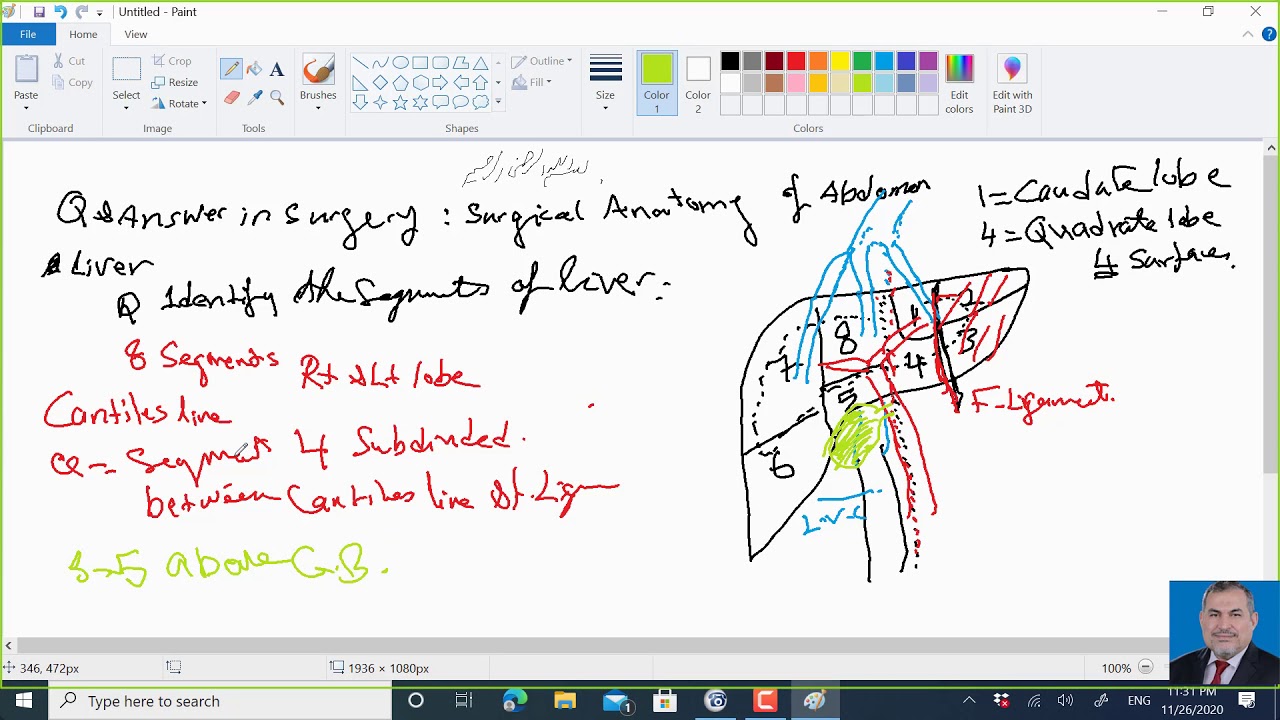 Untitled - Paint
File Home View
Paste
Cut
Copy
Clipboard
Select
Crop
Resize
Rotate
Image
A
Tools
Brushes
Shapes
Outline
Fill
Size
Color 1
Color 2
Colors
Edit colors
Edit with Paint 3D
Q & Answer in surgery : Surgical Anatomy of Abdomen
Liver
Q Identify the Segments of liver :
8 Segments Rt & Lt lobe
Cantiles line
Segment 4 Subdivided.
between Cantiles line & f. Ligm
5 above G.B.
1 = Caudate lobe
4 = Quadrate lobe
4 Surfaces.
8 1 2
7 4 3
5
6
F-Ligament.
I.V.C
346, 472px
1936 × 1080px
100%
Type here to search
1
ENG
11:31 PM
11/26/2020